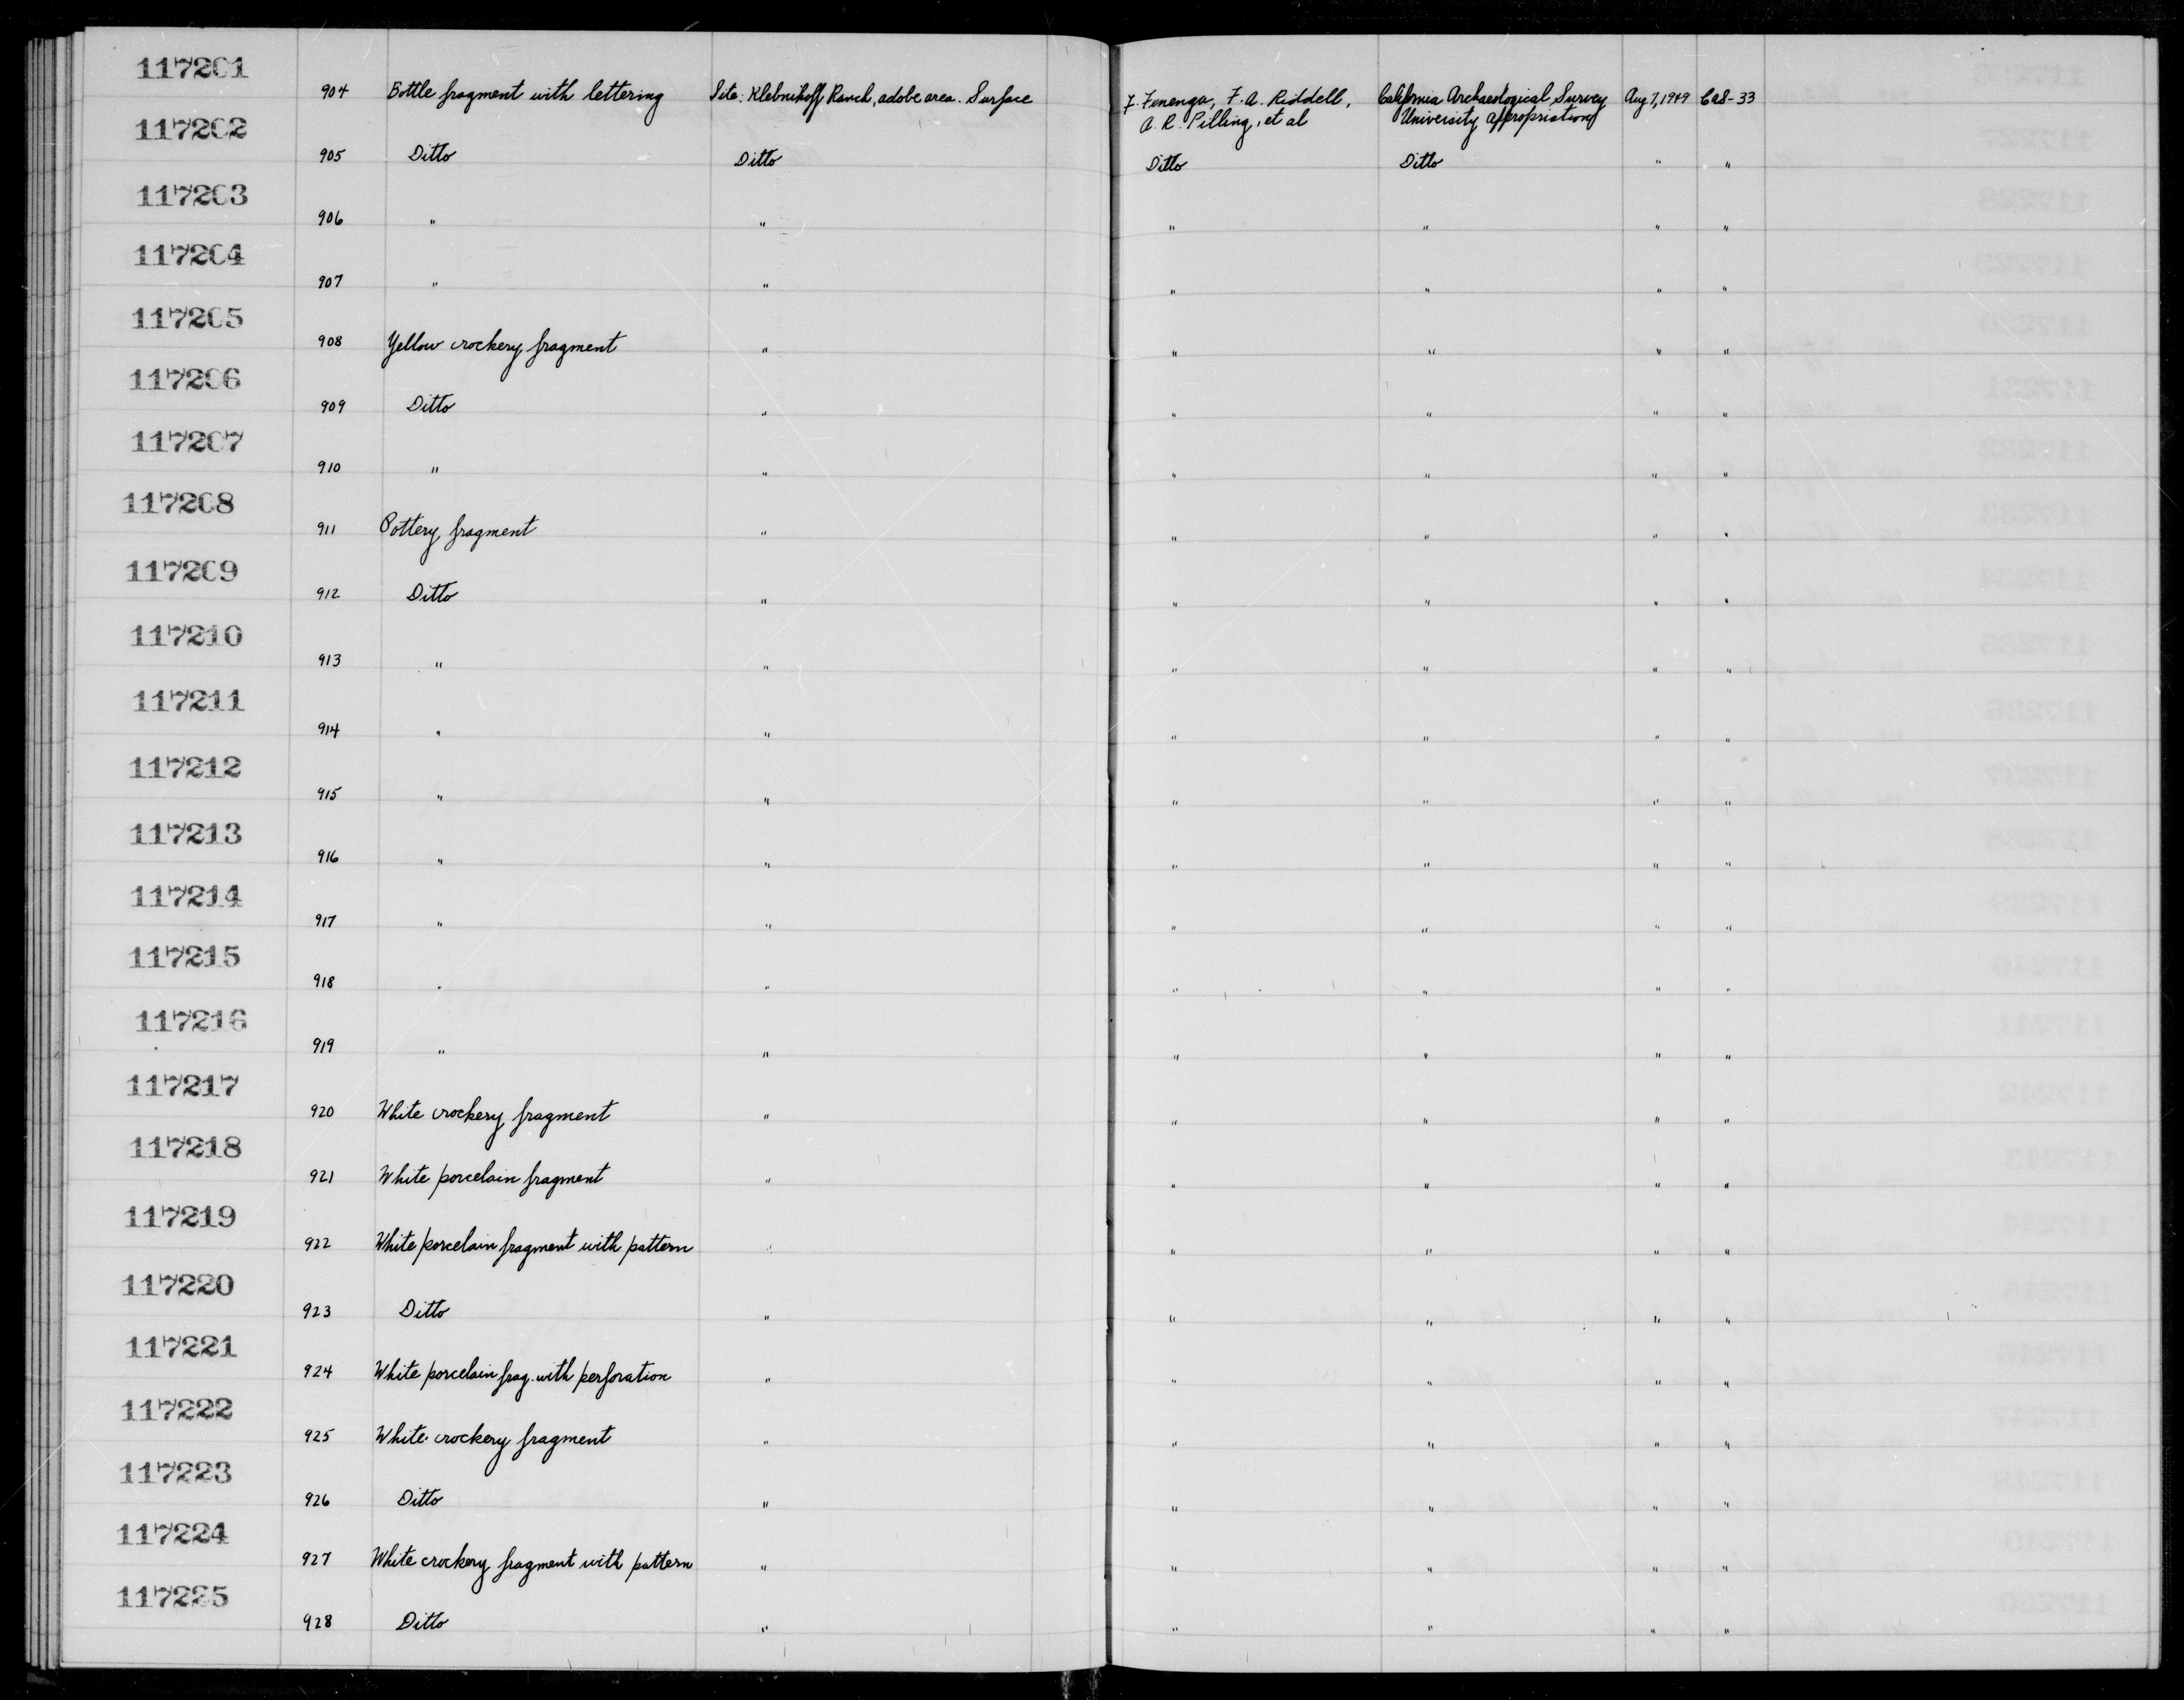 117201
904 Bottle fragment with lettering Site: Klebnikoff Ranch, adobe area. Surface F. Fenenga, F. A. Riddell, California Archaeological Survey Aug 7, 1949 CaS-33
A. R. Pilling, et al University appropriations
117202
905 Ditto Ditto Ditto Ditto " "
117203
906 " " " " " "
117204
907 " " " " " "
117205
908 Yellow crockery fragment " " " " "
117206
909 Ditto " " " " "
117207
910 " " " " " "
117208
911 Pottery fragment " " " " "
117209
912 Ditto " " " " "
117210
913 " " " " " "
117211
914 " " " " " "
117212
915 " " " " " "
117213
916 " " " " " "
117214
917 " " " " " "
117215
918 " " " " " "
117216
919 " " " " " "
117217
920 White crockery fragment " " " " "
117218
921 White porcelain fragment " " " " "
117219
922 White porcelain fragment with pattern " " " " "
117220
923 Ditto " " " " "
117221
924 White porcelain frag. with perforation " " " " "
117222
925 White crockery fragment " " " " "
117223
926 Ditto " " " " "
117224
927 White crockery fragment with pattern " " " " "
117225
928 Ditto " " " " "